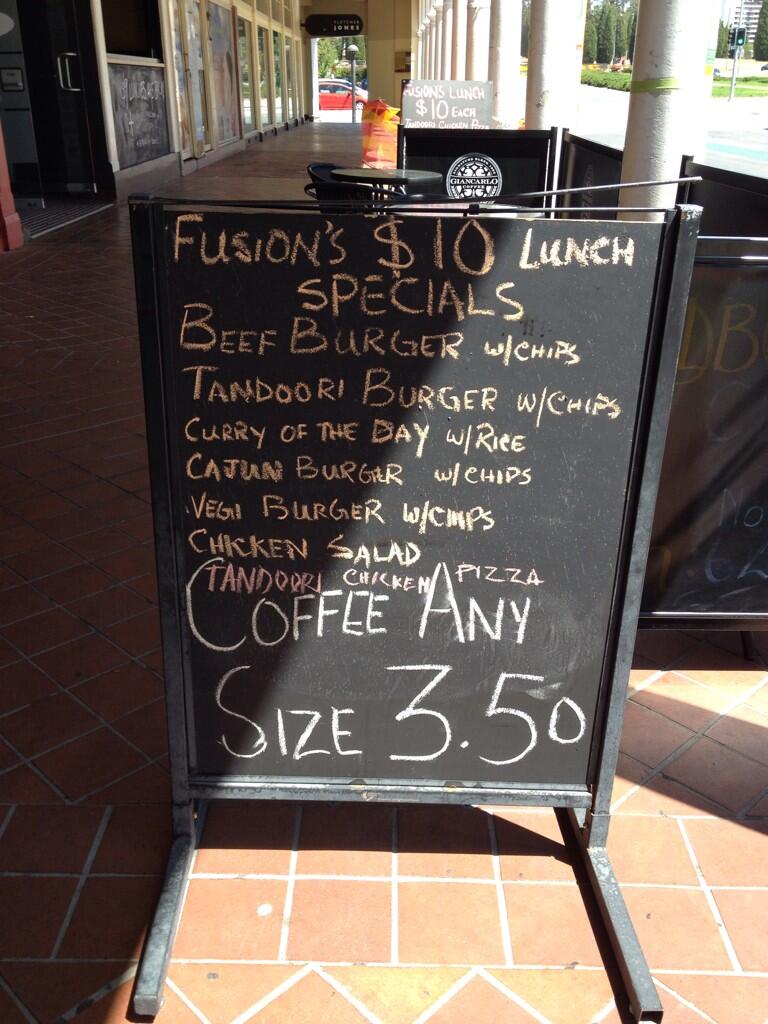 FLETCHER
JONES
FUSIONS LUNCH
$10 EACH
TANDOORI CHICKEN PIZZA
GIANCARLO
COFFEE
FUSION'S $10 LUNCH
SPECIALS
BEEF BURGER W/CHIPS
TANDOORI BURGER W/CHIPS
CURRY OF THE DAY W/RICE
CAJUN BURGER W/CHIPS
VEGI BURGER W/CHIPS
CHICKEN SALAD
TANDOORI CHICKEN PIZZA
COFFEE ANY
SIZE 3.50